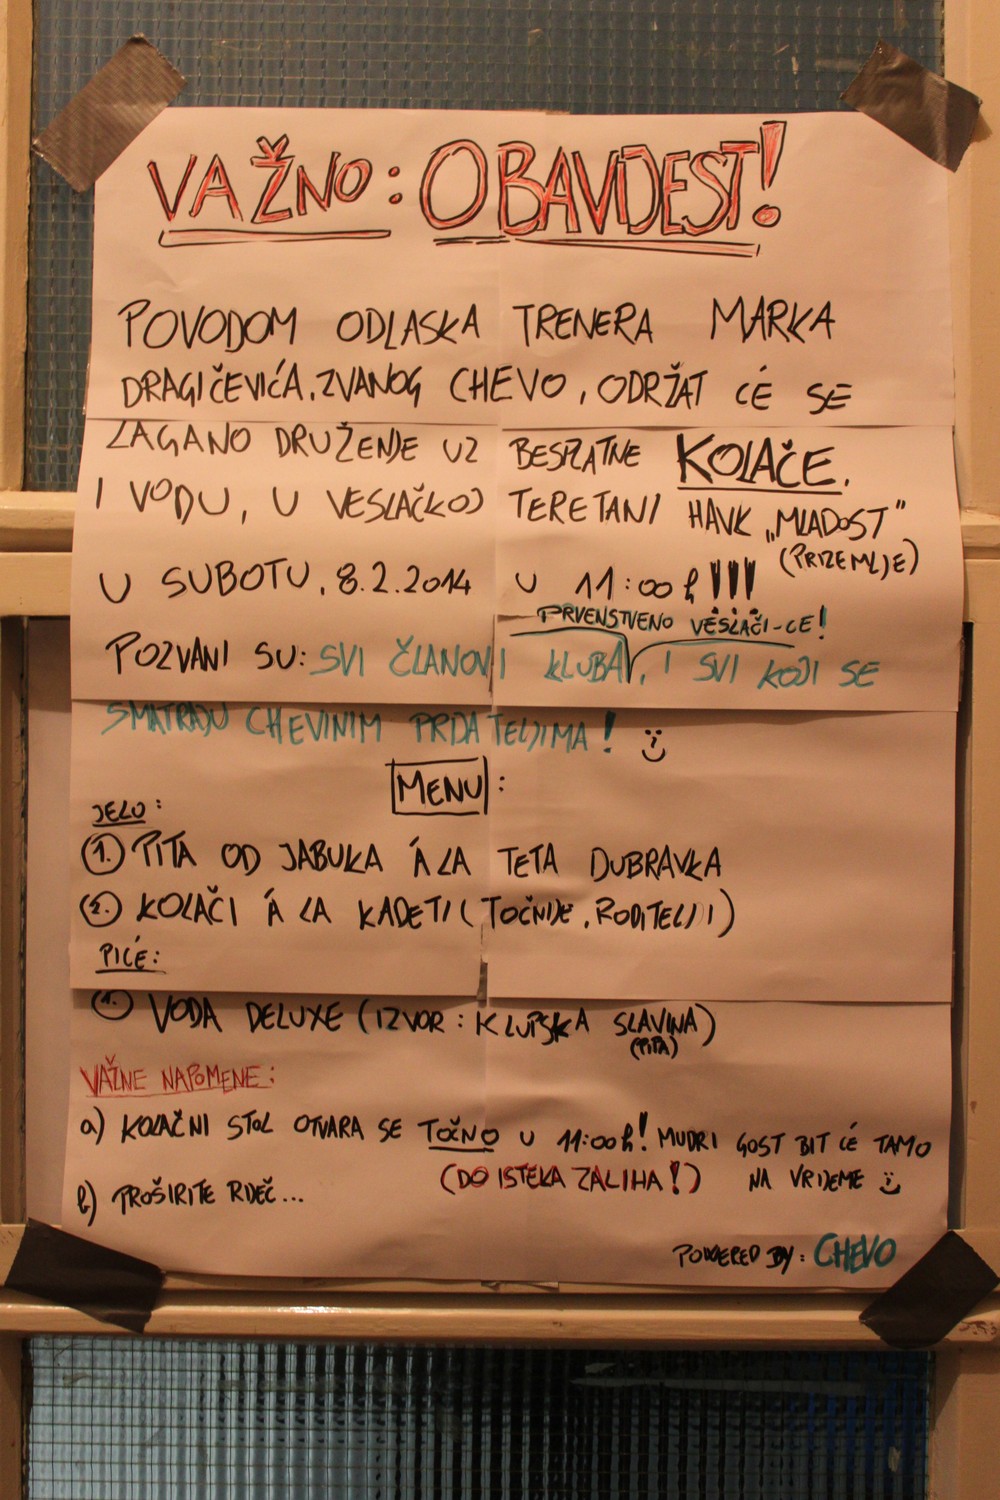 VAŽNO: OBAVIJEST!
POVODOM ODLASKA TRENERA MARKA
DRAGIČEVIĆA, ZVANOG CHEVO, ODRŽAT ĆE SE
LAGANO DRUŽENJE UZ BESPLATNE KOLAČE.
I VODU, U VESLAČKOJ TERETANI HAVK „MLADOST"
(PRIZEMLJE)
U SUBOTU, 8.2.2014 U 11:00 h!!!
PRVENSTVENO VESLAČI-CE!
POZVANI SU: SVI ČLANOVI KLUBA, I SVI KOJI SE
SMATRAJU CHEVINIM PRIJATELJIMA!
MENU:
JELO:
1. PITA OD JABUKA Á LA TETA DUBRAVKA
2. KOLAČI Á LA KADETI (TOČNIJE, RODITELJI)
PIĆE:
1. VODA DELUXE (IZVOR: KLUPSKA SLAVINA)
(PIPA)
VAŽNE NAPOMENE:
a) KOLAČNI STOL OTVARA SE TOČNO U 11:00h! MUDRI GOST BIT ĆE TAMO
(DO ISTEKA ZALIHA!) NA VRIJEME
b) PROŠIRITE RIJEČ...
POWERED BY: CHEVO